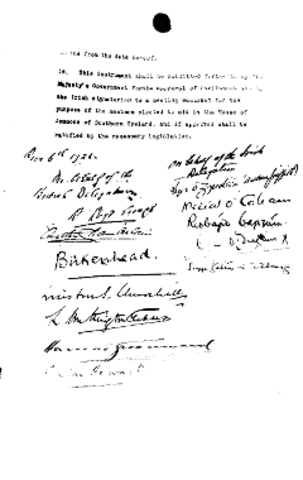 from the date hereof.
18. This instrument shall be submitted forthwith by His
Majesty's Government for the approval of Parliament and by
the Irish signatories to a meeting summoned for the
purpose of the members elected to sit in the House of
Commons of Southern Ireland, and if approved shall be
ratified by the necessary legislation.
Dec 6th 1921.
On behalf of the
British Delegation
D Lloyd George
Austen Chamberlain
Birkenhead.
Winston S. Churchill
L Worthington-Evans
Hamar Greenwood
Gordon Hewart
On behalf of the Irish
Delegation
Art Ó Gríobhtha (Arthur Griffith)
Micheál Ó Coileain
Riobárd Bartún